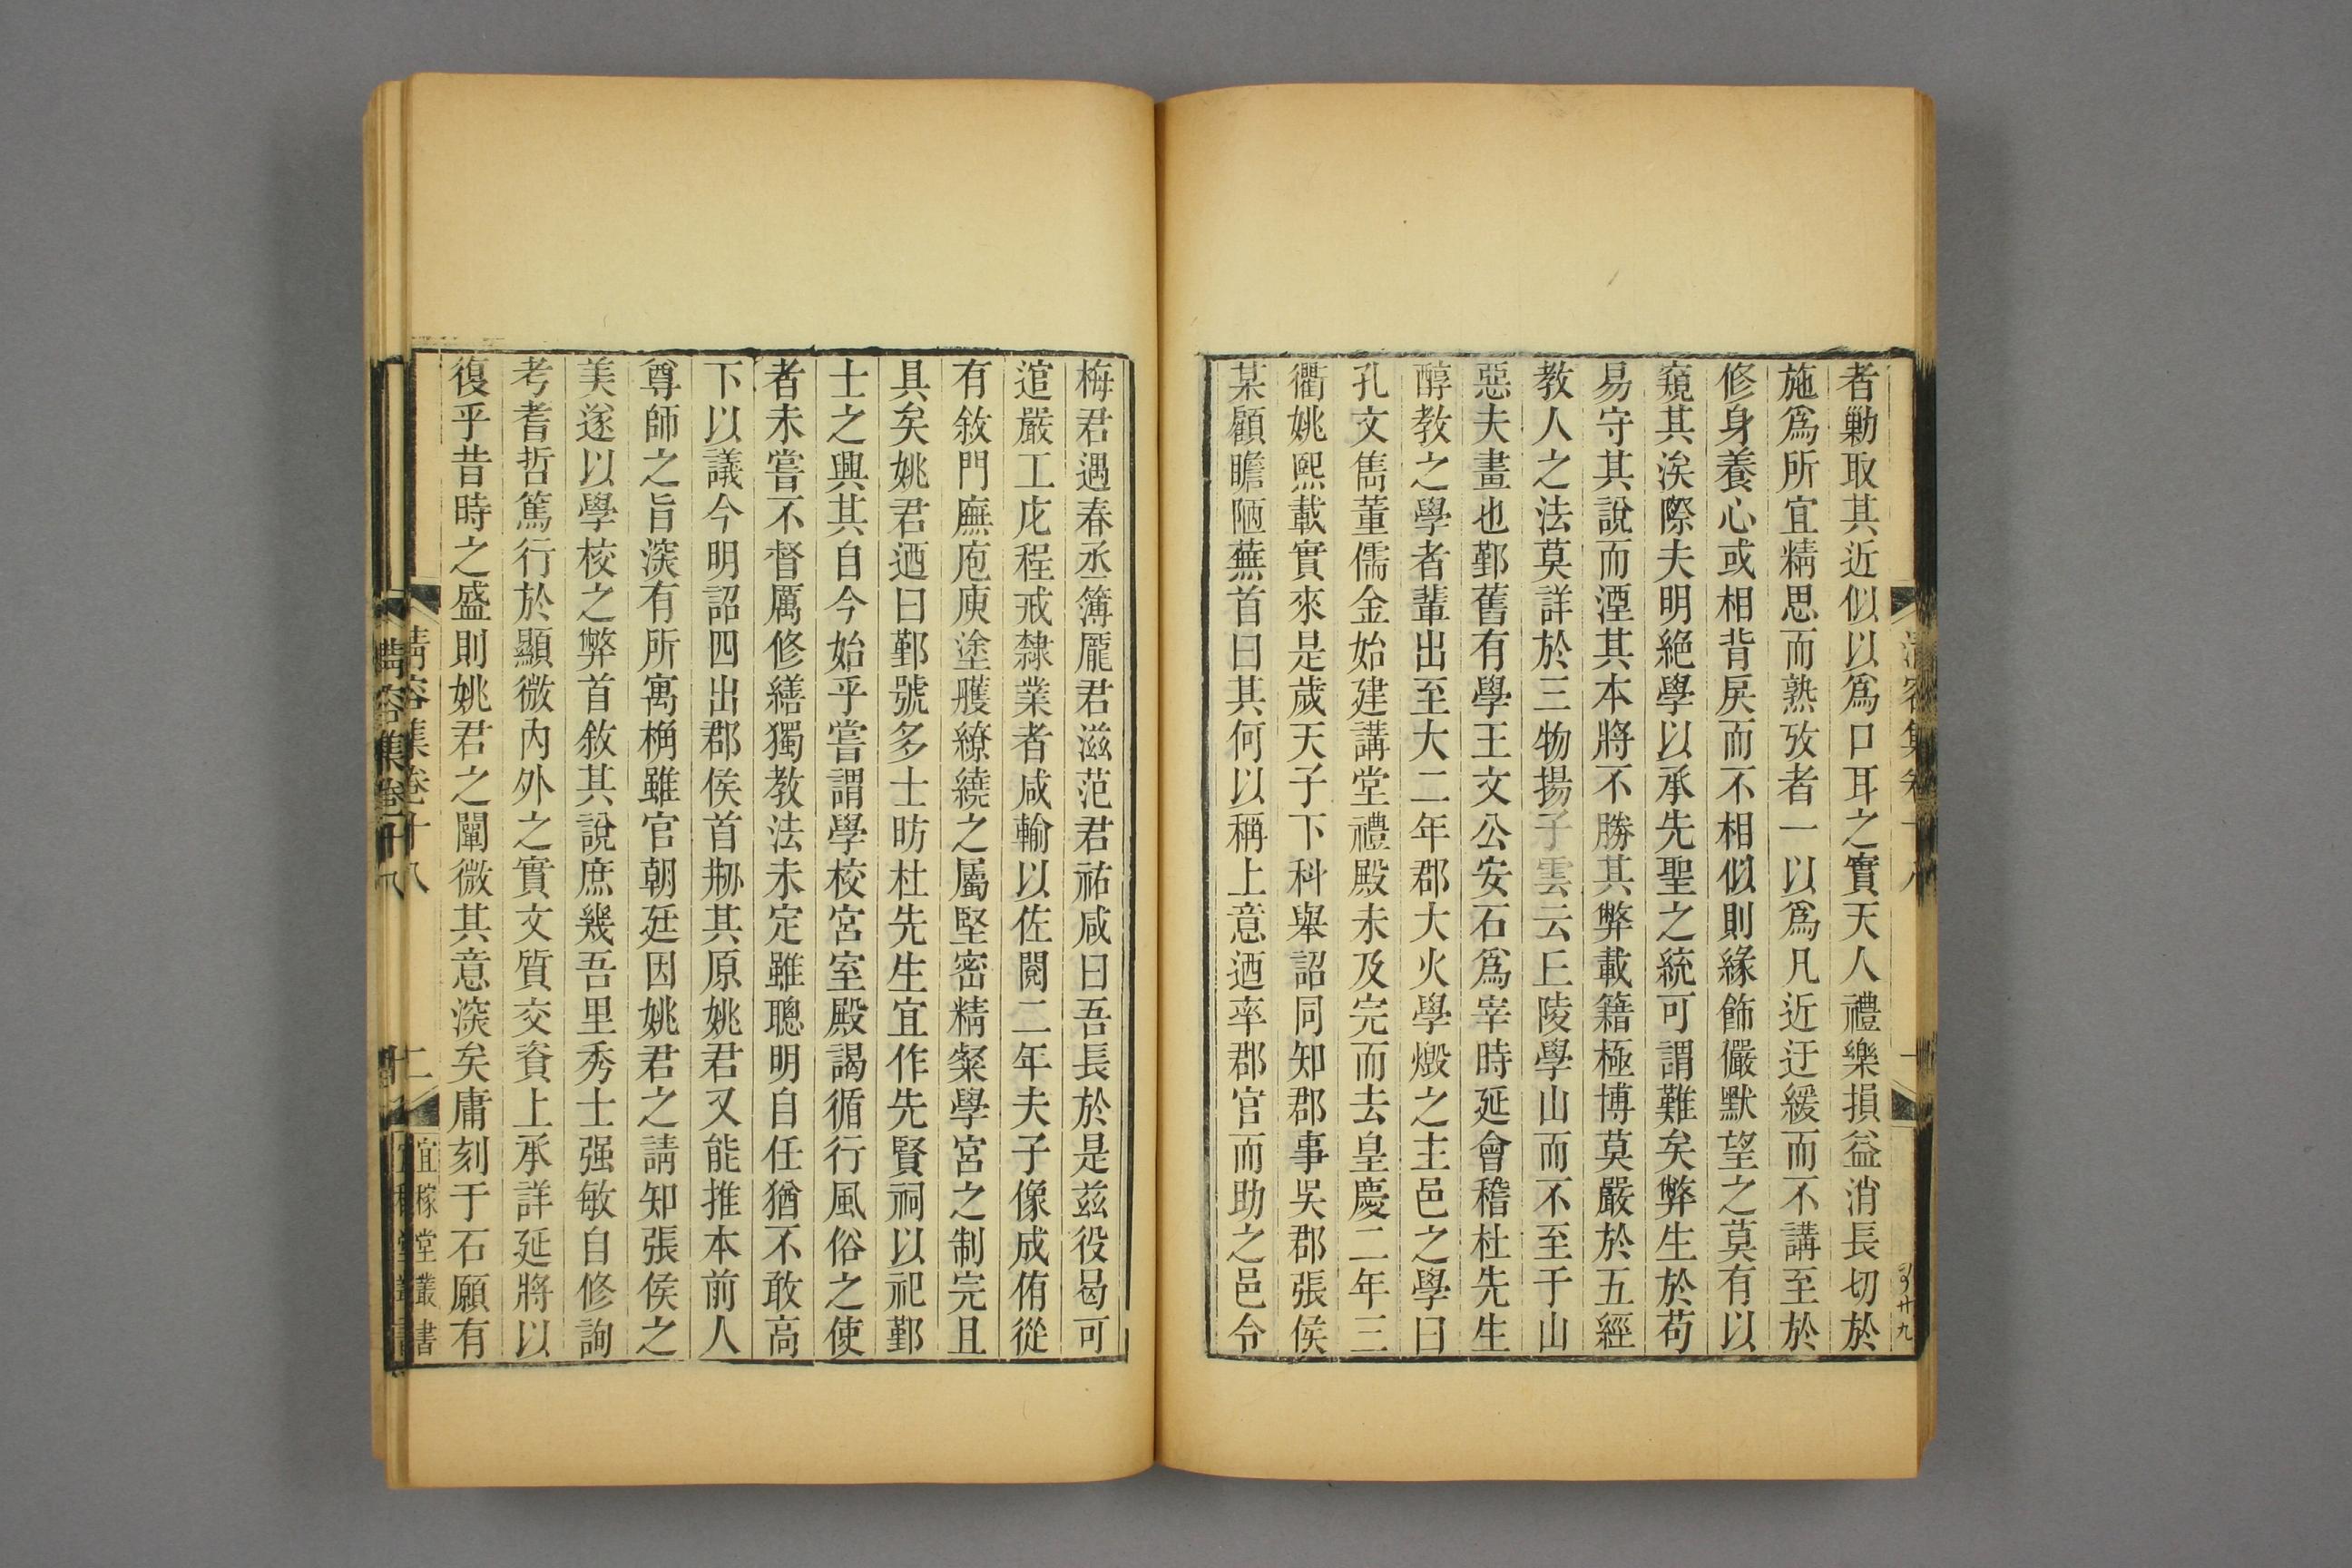 者勦取其近似以爲口耳之實天人禮樂損益消長切於
施爲所宜精思而熟攷者一以爲凡近迂緩而不講至於
修身養心或相背戾而不相似則緣飾儼默望之莫有以
窺其涘際夫明絕學以承先聖之統可謂難矣弊生於苟
易守其說而湮其本將不勝其弊載籍極博莫嚴於五經
教人之法莫詳於三物揚子雲云丘陵學山而不至于山
惡夫畫也鄞舊有學王文公安石爲宰時延會稽杜先生
醇教之學者輩出至大二年郡大火學燬之主邑之學曰
孔文雋董儒金始建講堂禮殿未及完而去皇慶二年三
衢姚熙載實來是歲天子下科舉詔同知郡事吳郡張侯
某顧瞻陋蕪首曰其何以稱上意迺率郡官而助之邑令
梅君遇春丞簿龐君滋范君祐咸曰吾長於是茲役曷可
逭嚴工庀程戒隸業者咸輸以佐閱二年夫子像成侑從
有敘門廡庖庾塗雘繚繞之屬堅密精粲學宮之制完且
具矣姚君迺曰鄞號多士昉杜先生宜作先賢祠以祀鄞
士之興其自今始乎嘗謂學校宮室殿謁循行風俗之使
者未嘗不督厲修繕獨教法未定雖聰明自任猶不敢高
下以議今明詔四出郡侯首刱其原姚君又能推本前人
尊師之旨深有所寓桷雖官朝廷因姚君之請知張侯之
美遂以學校之弊首敘其說庶幾吾里秀士强敏自修詢
考耆哲篤行於顯微內外之實文質交資上承詳延將以
復乎昔時之盛則姚君之闡微其意深矣庸刻于石願有
清容集卷十八
十二
宜稼堂叢書